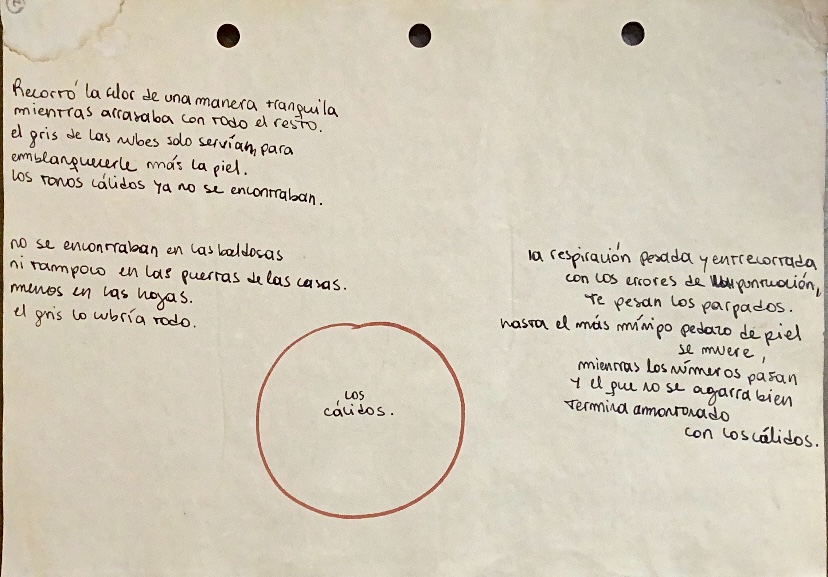 Recorró la calor de una manera tranquila
mientras arrasaba con todo el resto.
el gris de las nubes solo servían, para
emblanquecerle más la piel.
los tonos cálidos ya no se encontraban.
no se encontraban en las baldosas
ni tampoco en las puertas de las casas.
menos en las hojas.
el gris lo cubría todo.
los
cálidos.
la respiración pesada y entrecortada
con los errores de puntuación,
te pesan los parpados.
hasta el más mínipo pedazo de piel
se muere,
mientras los números pasan
y el que no se agarra bien
termina amontonado
con los cálidos.